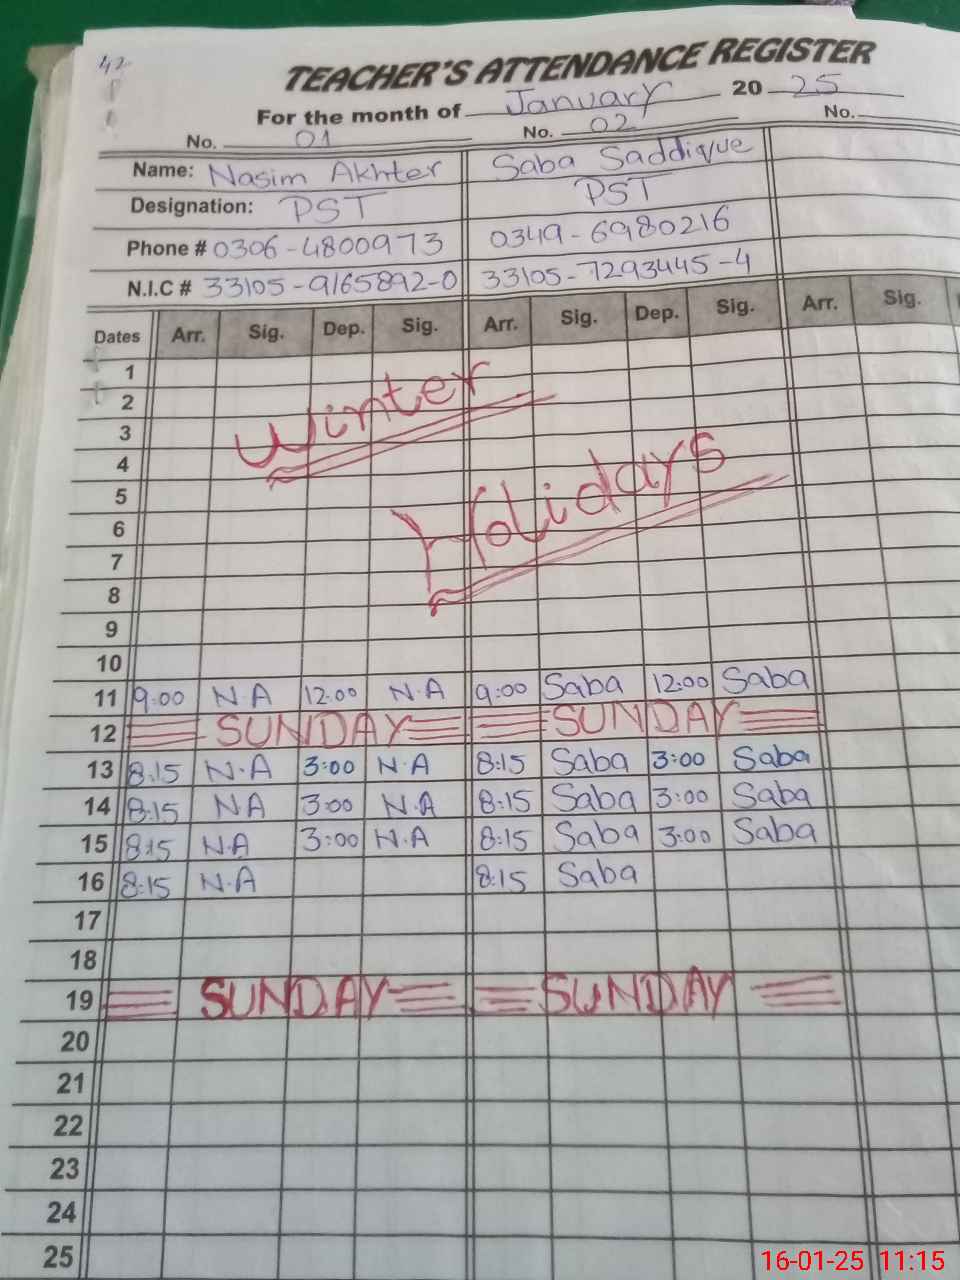 42
TEACHER'S ATTENDANCE REGISTER
For the month of January 20 25
No. 01 No. 02 No.
Name: Nasim Akhter Saba Saddique
Designation: PST PST
Phone # 0306-4800973 0349-6980216
N.I.C # 33105-9165892-0 33105-7293445-4
Dates Arr. Sig. Dep. Sig. Arr. Sig. Dep. Sig. Arr. Sig.
1
2 Winter
3
4
5 Holidays
6
7
8
9
10
11 9:00 N.A 12:00 N.A 9:00 Saba 12:00 Saba
12 SUNDAY SUNDAY
13 8:15 N.A 3:00 N.A 8:15 Saba 3:00 Saba
14 8:15 NA 3:00 N.A 8:15 Saba 3:00 Saba
15 8:15 N.A 3:00 N.A 8:15 Saba 3:00 Saba
16 8:15 N.A 8:15 Saba
17
18
19 SUNDAY SUNDAY
20
21
22
23
24
25
16-01-25 11:15